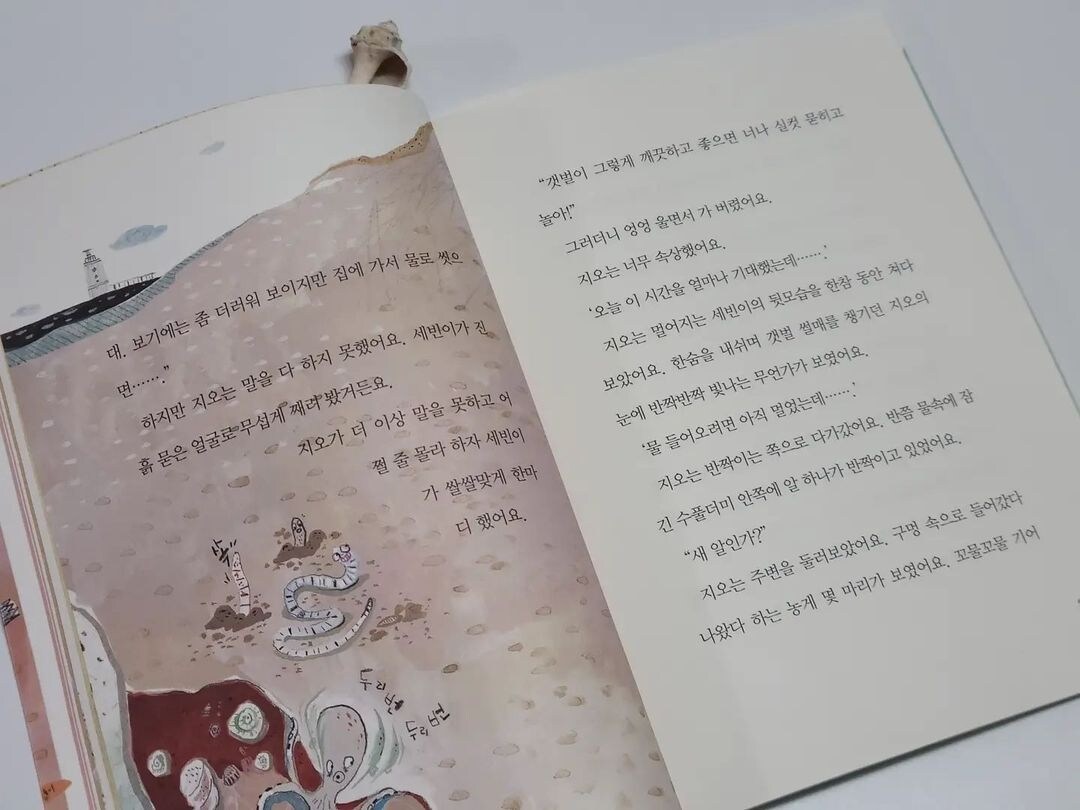 대. 보기에는 좀 더러워 보이지만 집에 가서 물로 씻으
면…….”
하지만 지오는 말을 다 하지 못했어요. 세빈이가 진
흙 묻은 얼굴로 무섭게 째려 봤거든요.
지오가 더 이상 말을 못하고 어
쩔 줄 몰라 하자 세빈이
가 쌀쌀맞게 한마
디 했어요.
두리번
두리번
“갯벌이 그렇게 깨끗하고 좋으면 너나 실컷 묻히고
놀아!”
그러더니 엉엉 울면서 가 버렸어요.
지오는 너무 속상했어요.
‘오늘 이 시간을 얼마나 기대했는데…….’
지오는 멀어지는 세빈이의 뒷모습을 한참 동안 쳐다
보았어요. 한숨을 내쉬며 갯벌 썰매를 챙기던 지오의
눈에 반짝반짝 빛나는 무언가가 보였어요.
‘물 들어오려면 아직 멀었는데…….’
지오는 반짝이는 쪽으로 다가갔어요. 반쯤 물속에 잠
긴 수풀더미 안쪽에 알 하나가 반짝이고 있었어요.
“새 알인가?”
지오는 주변을 둘러보았어요. 구멍 속으로 들어갔다
나왔다 하는 농게 몇 마리가 보였어요. 꼬물꼬물 기어